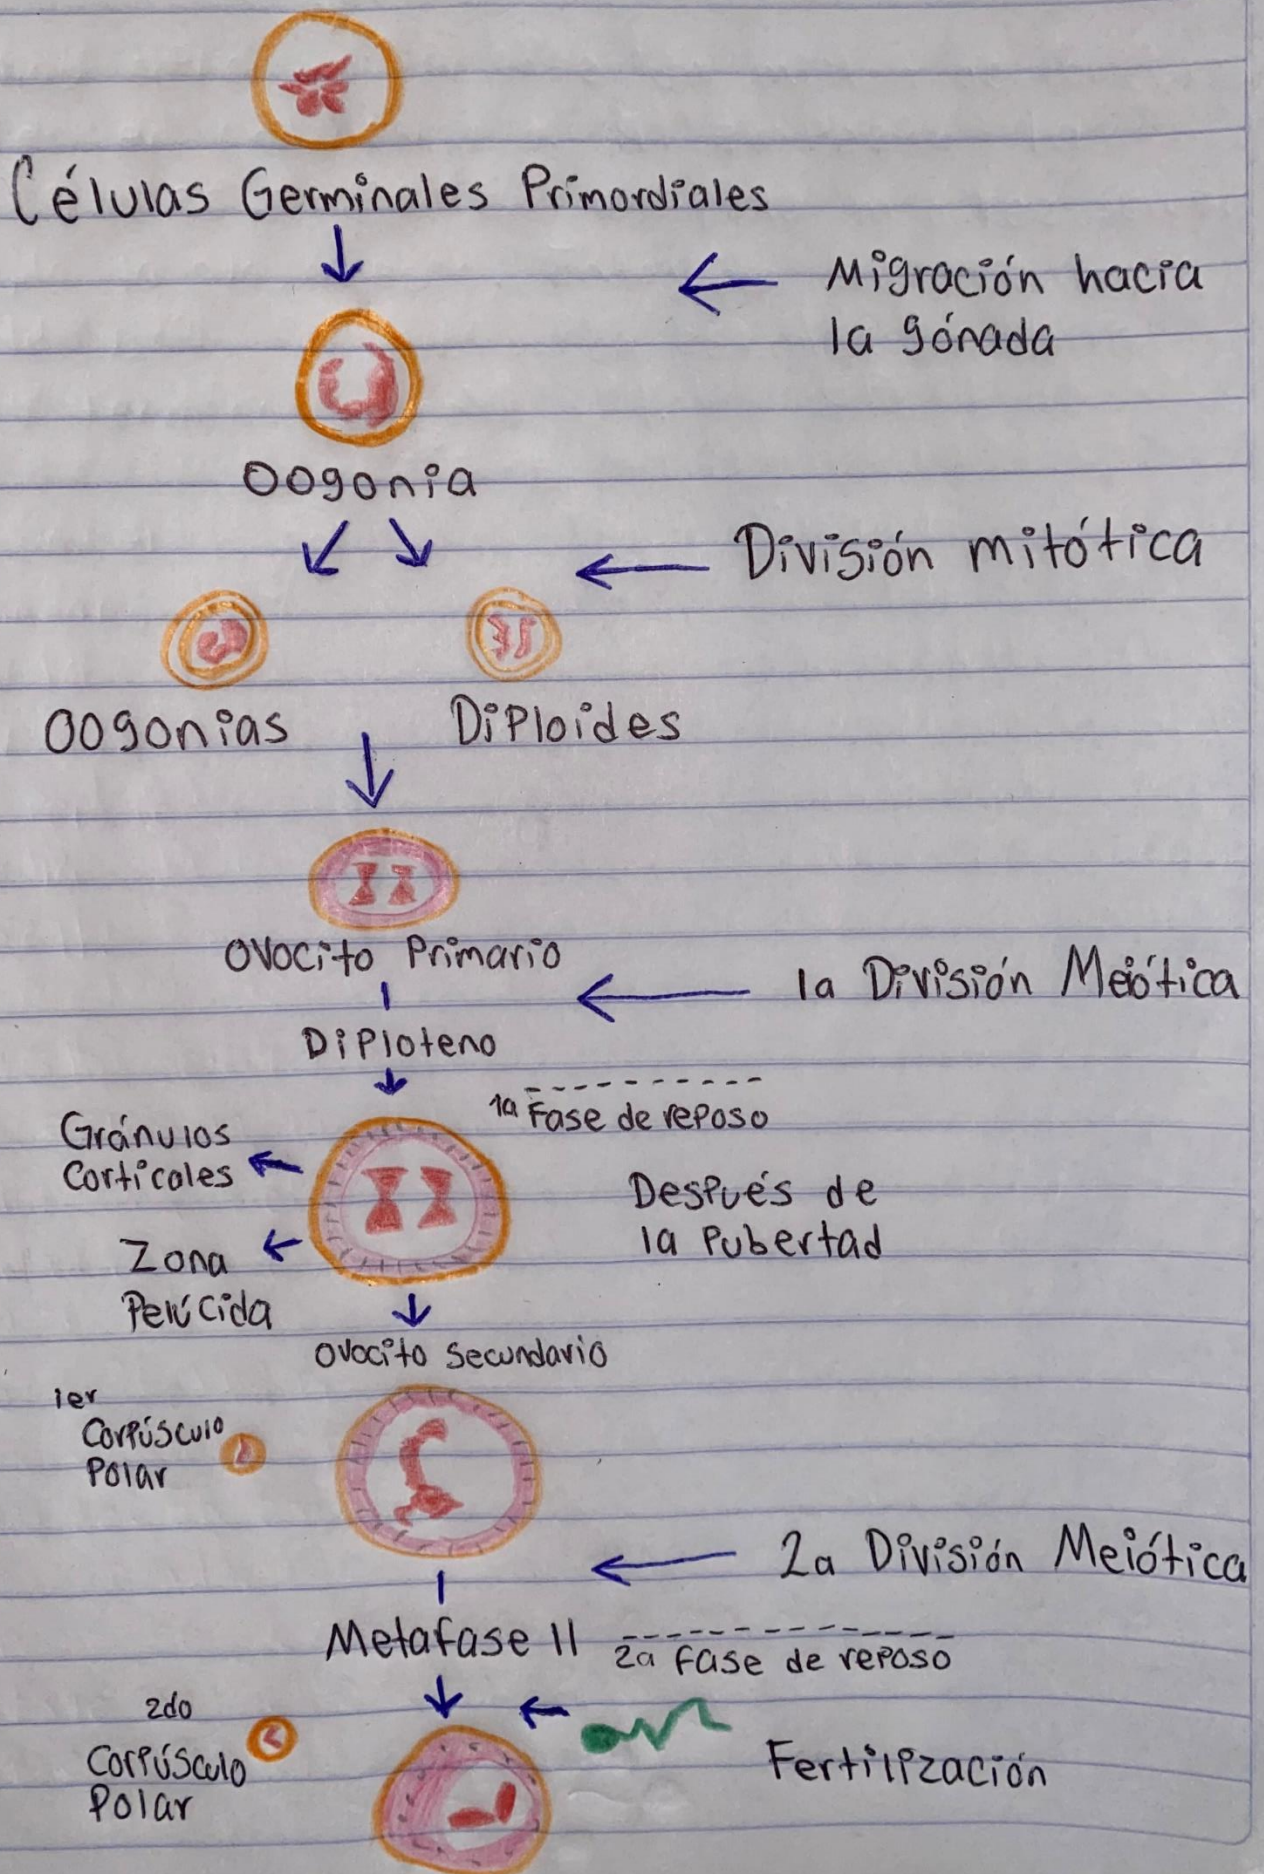 Células Germinales Primordiales
Migración hacia
la gónada
Oogonia
División mitótica
Oogonias
Diploides
Ovocito Primario
1a División Meiótica
Diploteno
1a Fase de reposo
Gránulos
Corticales
Después de
la Pubertad
Zona
Pelúcida
Ovocito Secundario
1er
Corpúsculo
Polar
2a División Meiótica
Metafase II
2a fase de reposo
2do
Corpúsculo
Polar
Fertilización